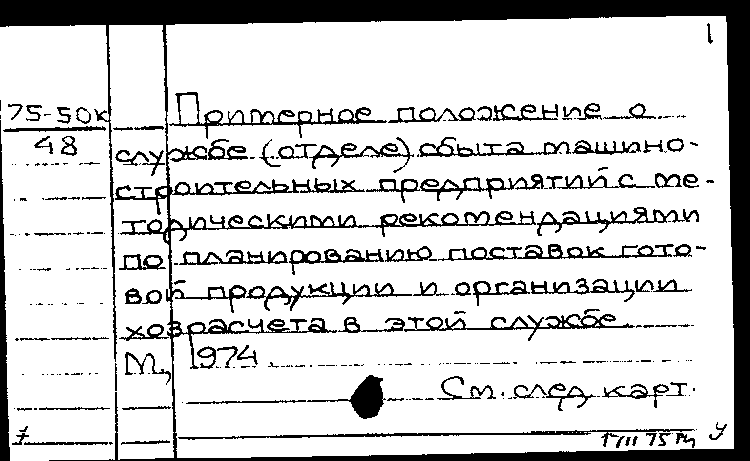 1
75-50к
48
Примерное положение о
службе (отделе) сбыта машино-
строительных предприятий с ме-
тодическими рекомендациями
по планированию поставок гото-
вой продукции и организации
хозрасчета в этой службе.
М., 1974.
См. след. карт.
7
75
У